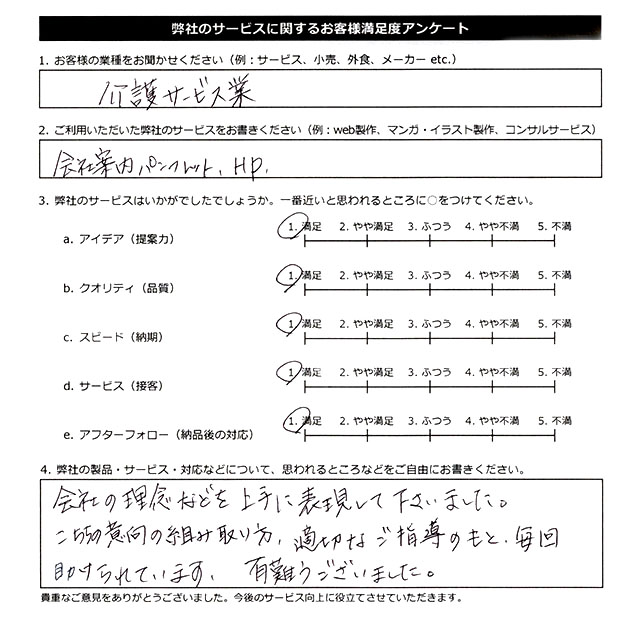 弊社のサービスに関するお客様満足度アンケート
1. お客様の業種をお聞かせください（例：サービス、小売、外食、メーカー etc.）
介護サービス業
2. ご利用いただいた弊社のサービスをお書きください（例：web製作、マンガ・イラスト製作、コンサルサービス）
会社案内パンフレット、HP、
3. 弊社のサービスはいかがでしたでしょうか。一番近いと思われるところに○をつけてください。
a. アイデア（提案力） 1. 満足 2. やや満足 3. ふつう 4. やや不満 5. 不満
b. クオリティ（品質） 1. 満足 2. やや満足 3. ふつう 4. やや不満 5. 不満
c. スピード（納期） 1. 満足 2. やや満足 3. ふつう 4. やや不満 5. 不満
d. サービス（接客） 1. 満足 2. やや満足 3. ふつう 4. やや不満 5. 不満
e. アフターフォロー（納品後の対応） 1. 満足 2. やや満足 3. ふつう 4. やや不満 5. 不満
4. 弊社の製品・サービス・対応などについて、思われるところなどをご自由にお書きください。
会社の理念などを上手に表現して下さいました。
こちらの意向の組み取り方、適切なご指導のもと、毎回
助けられています、有難うございました。
貴重なご意見をありがとうございました。今後のサービス向上に役立てさせていただきます。